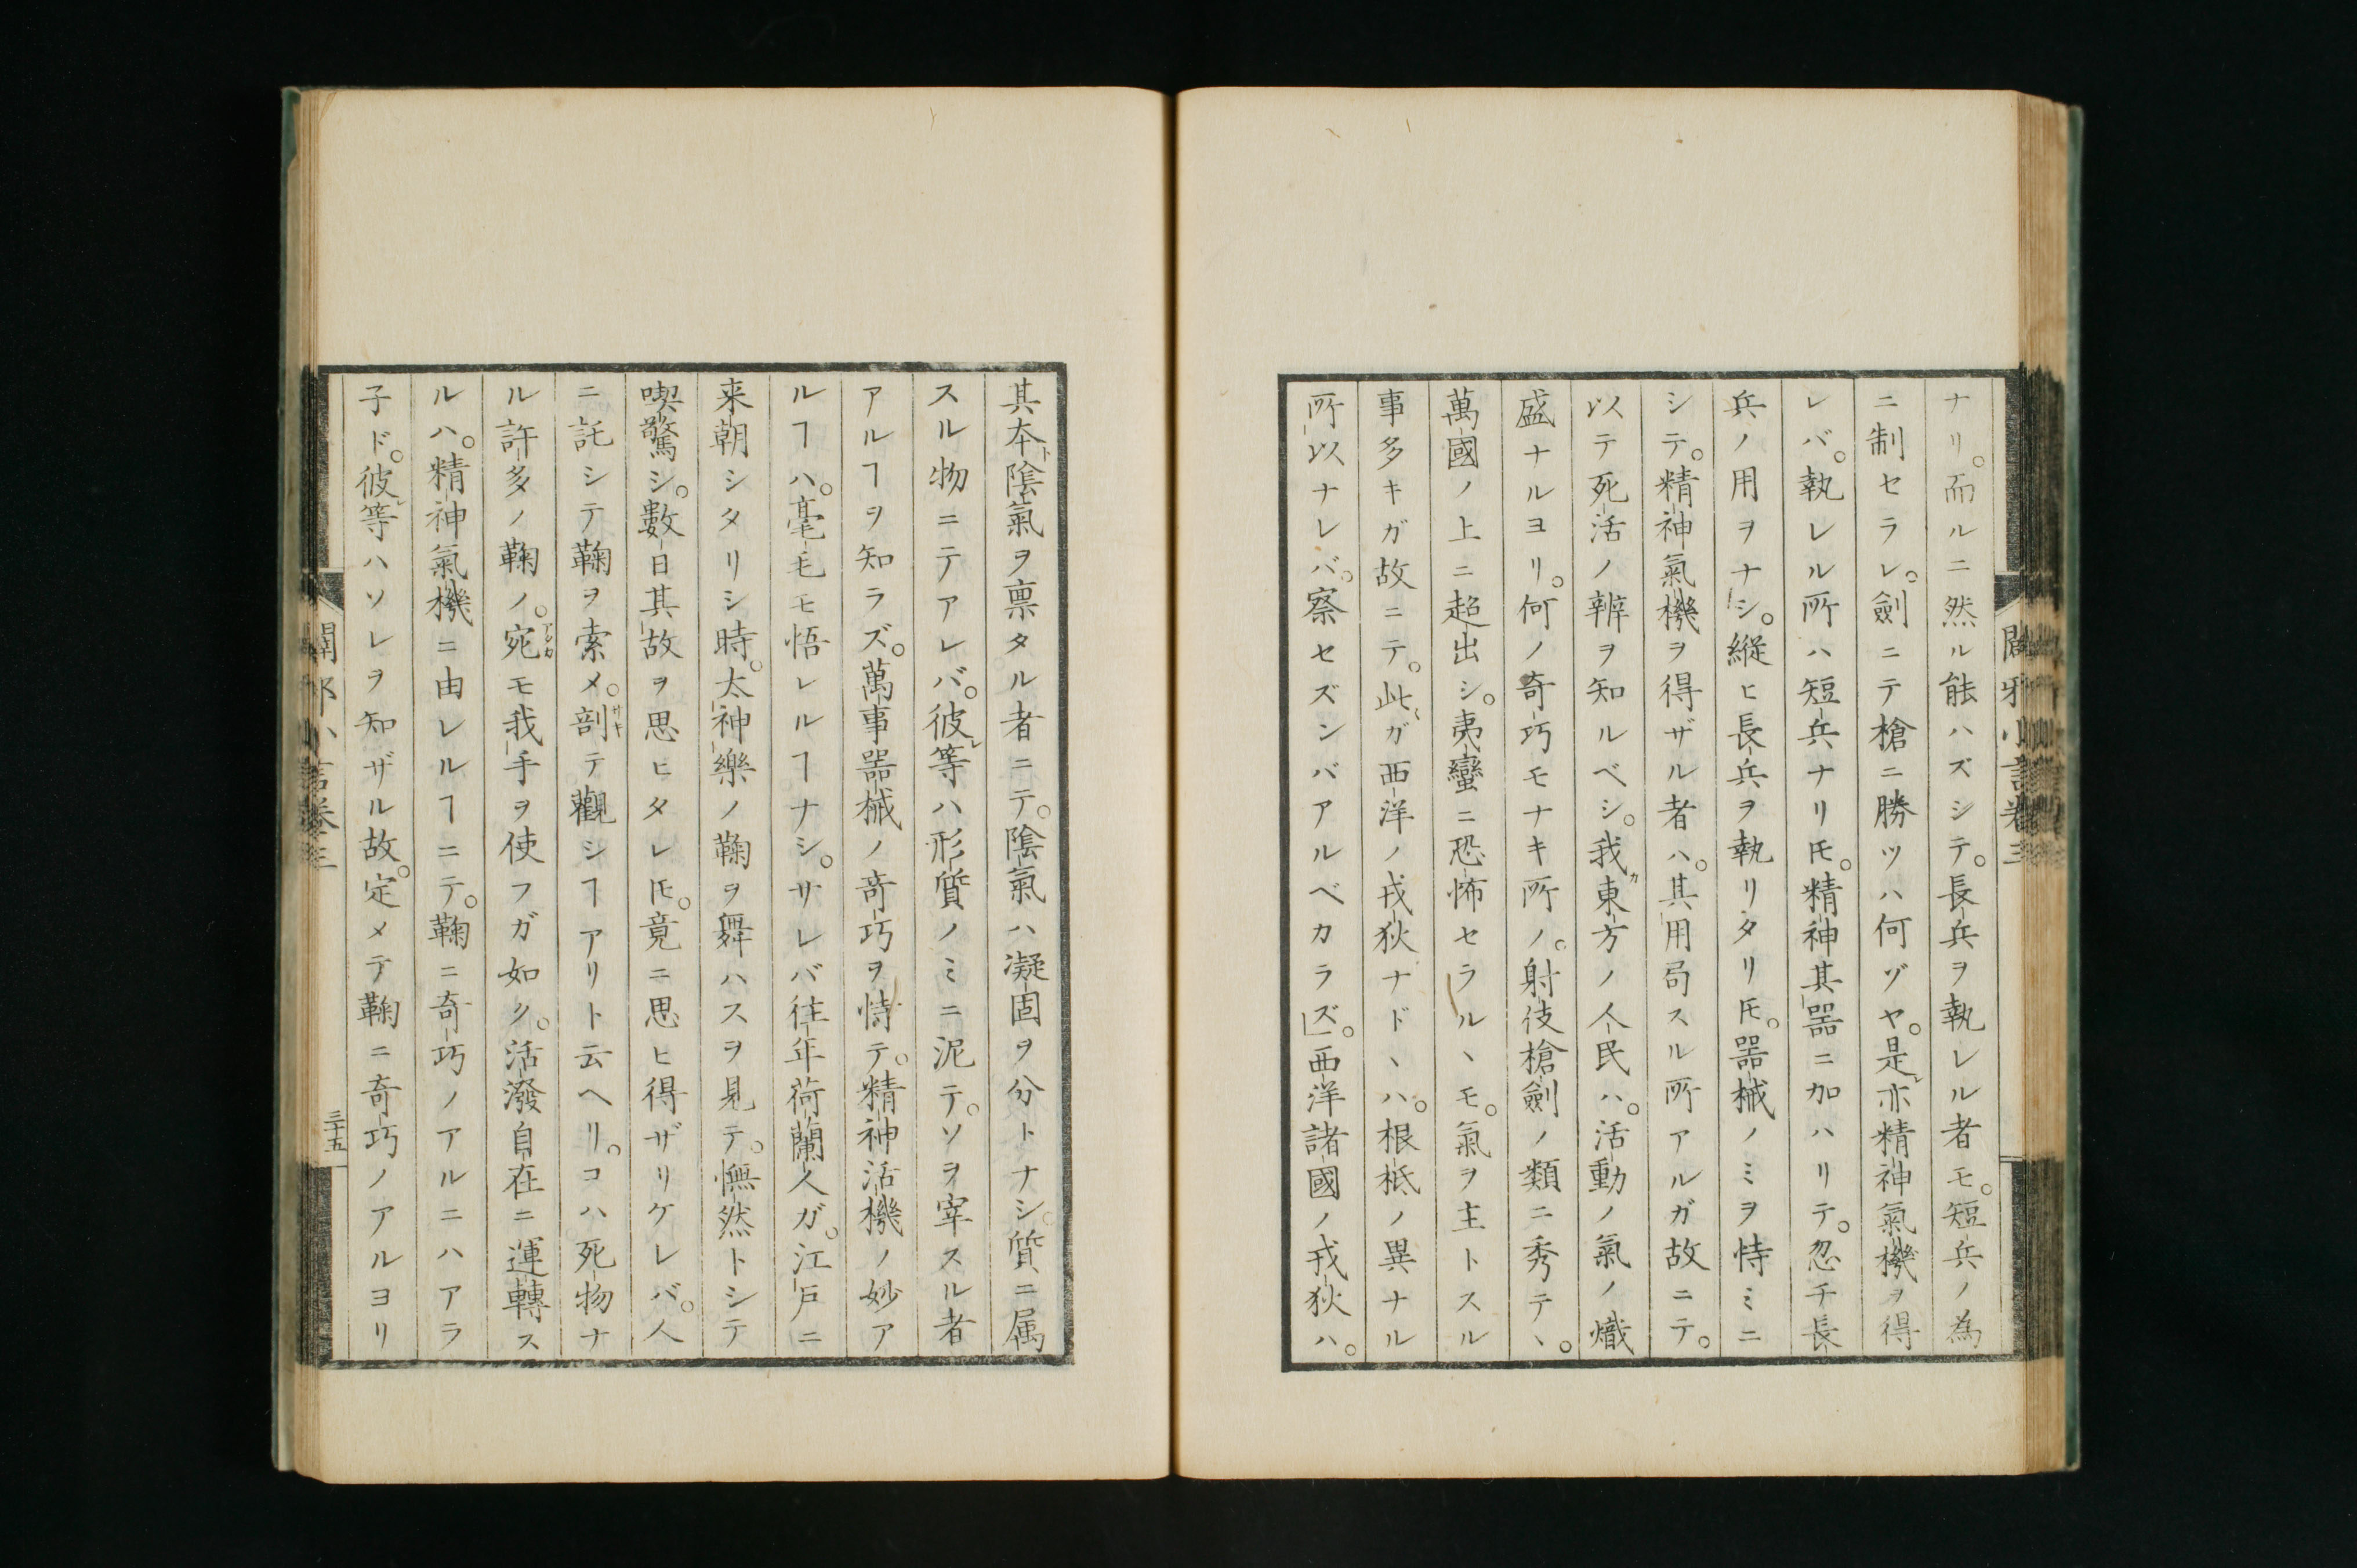 闢邪小言卷三
ナリ。而ルニ然ル能ハズシテ。長兵ヲ執レル者モ。短兵ノ為
ニ制セラレ。劍ニテ槍ニ勝ツハ何ゾヤ。是レ亦精神氣機ヲ得
レバ。執レル所ハ短兵ナリ𪜈。精神其器ニ加ハリテ。忽チ長
兵ノ用ヲナシ。縱ヒ長兵ヲ執リタリ𪜈。器械ノミヲ恃ミニ
シテ。精神氣機ヲ得ザル者ハ。其用局スル所アルガ故ニテ。
以テ死活ノ辨ヲ知ルベシ。我カ東方ノ人民ハ。活動ノ氣ノ熾
盛ナルヨリ。何ノ奇巧モナキ所ノ。射伎槍劍ノ類ニ秀テヽ。
萬國ノ上ニ超出シ。夷蠻ニ恐怖セラルヽモ。氣ヲ主トスル
事多キガ故ニテ。此ガ西洋ノ戎狄ナドヽハ。根柢ノ異ナル
所以ナレバ。察セズンバアルベカラズ。」西洋諸國ノ戎狄ハ。
其本ト陰氣ヲ禀タル者ニテ。陰氣ハ凝固ヲ分トナシ。質ニ属
スル物ニテアレバ。彼レ等ハ形質ノミニ泥テ。ソヲ宰スル者
アルヿヲ知ラズ。萬事器械ノ奇巧ヲ恃テ。精神活機ノ妙ア
ルヿハ。毫毛モ悟レルヿナシ。サレバ往年荷蘭人ガ。江戸ニ
来朝シタリシ時。太神樂ノ鞠ヲ舞ハスヲ見テ。憮然トシテ
喫驚シ。數日其故ヲ思ヒタレ𪜈。竟ニ思ヒ得ザリケレバ。人
ニ託シテ鞠ヲ索メ。剖サキテ觀シヿアリト云ヘリ。コハ死物ナ
ル許多ノ鞠ノ。宛アタカモ我手ヲ使フガ如ク。活潑自在ニ運轉ス
ルハ。精神氣機ニ由レルヿニテ。鞠ニ奇巧ノアルニハアラ
子ド。彼レ等ハソレヲ知ザル故。定メテ鞠ニ奇巧ノアルヨリ
闢邪小言卷三
三十五